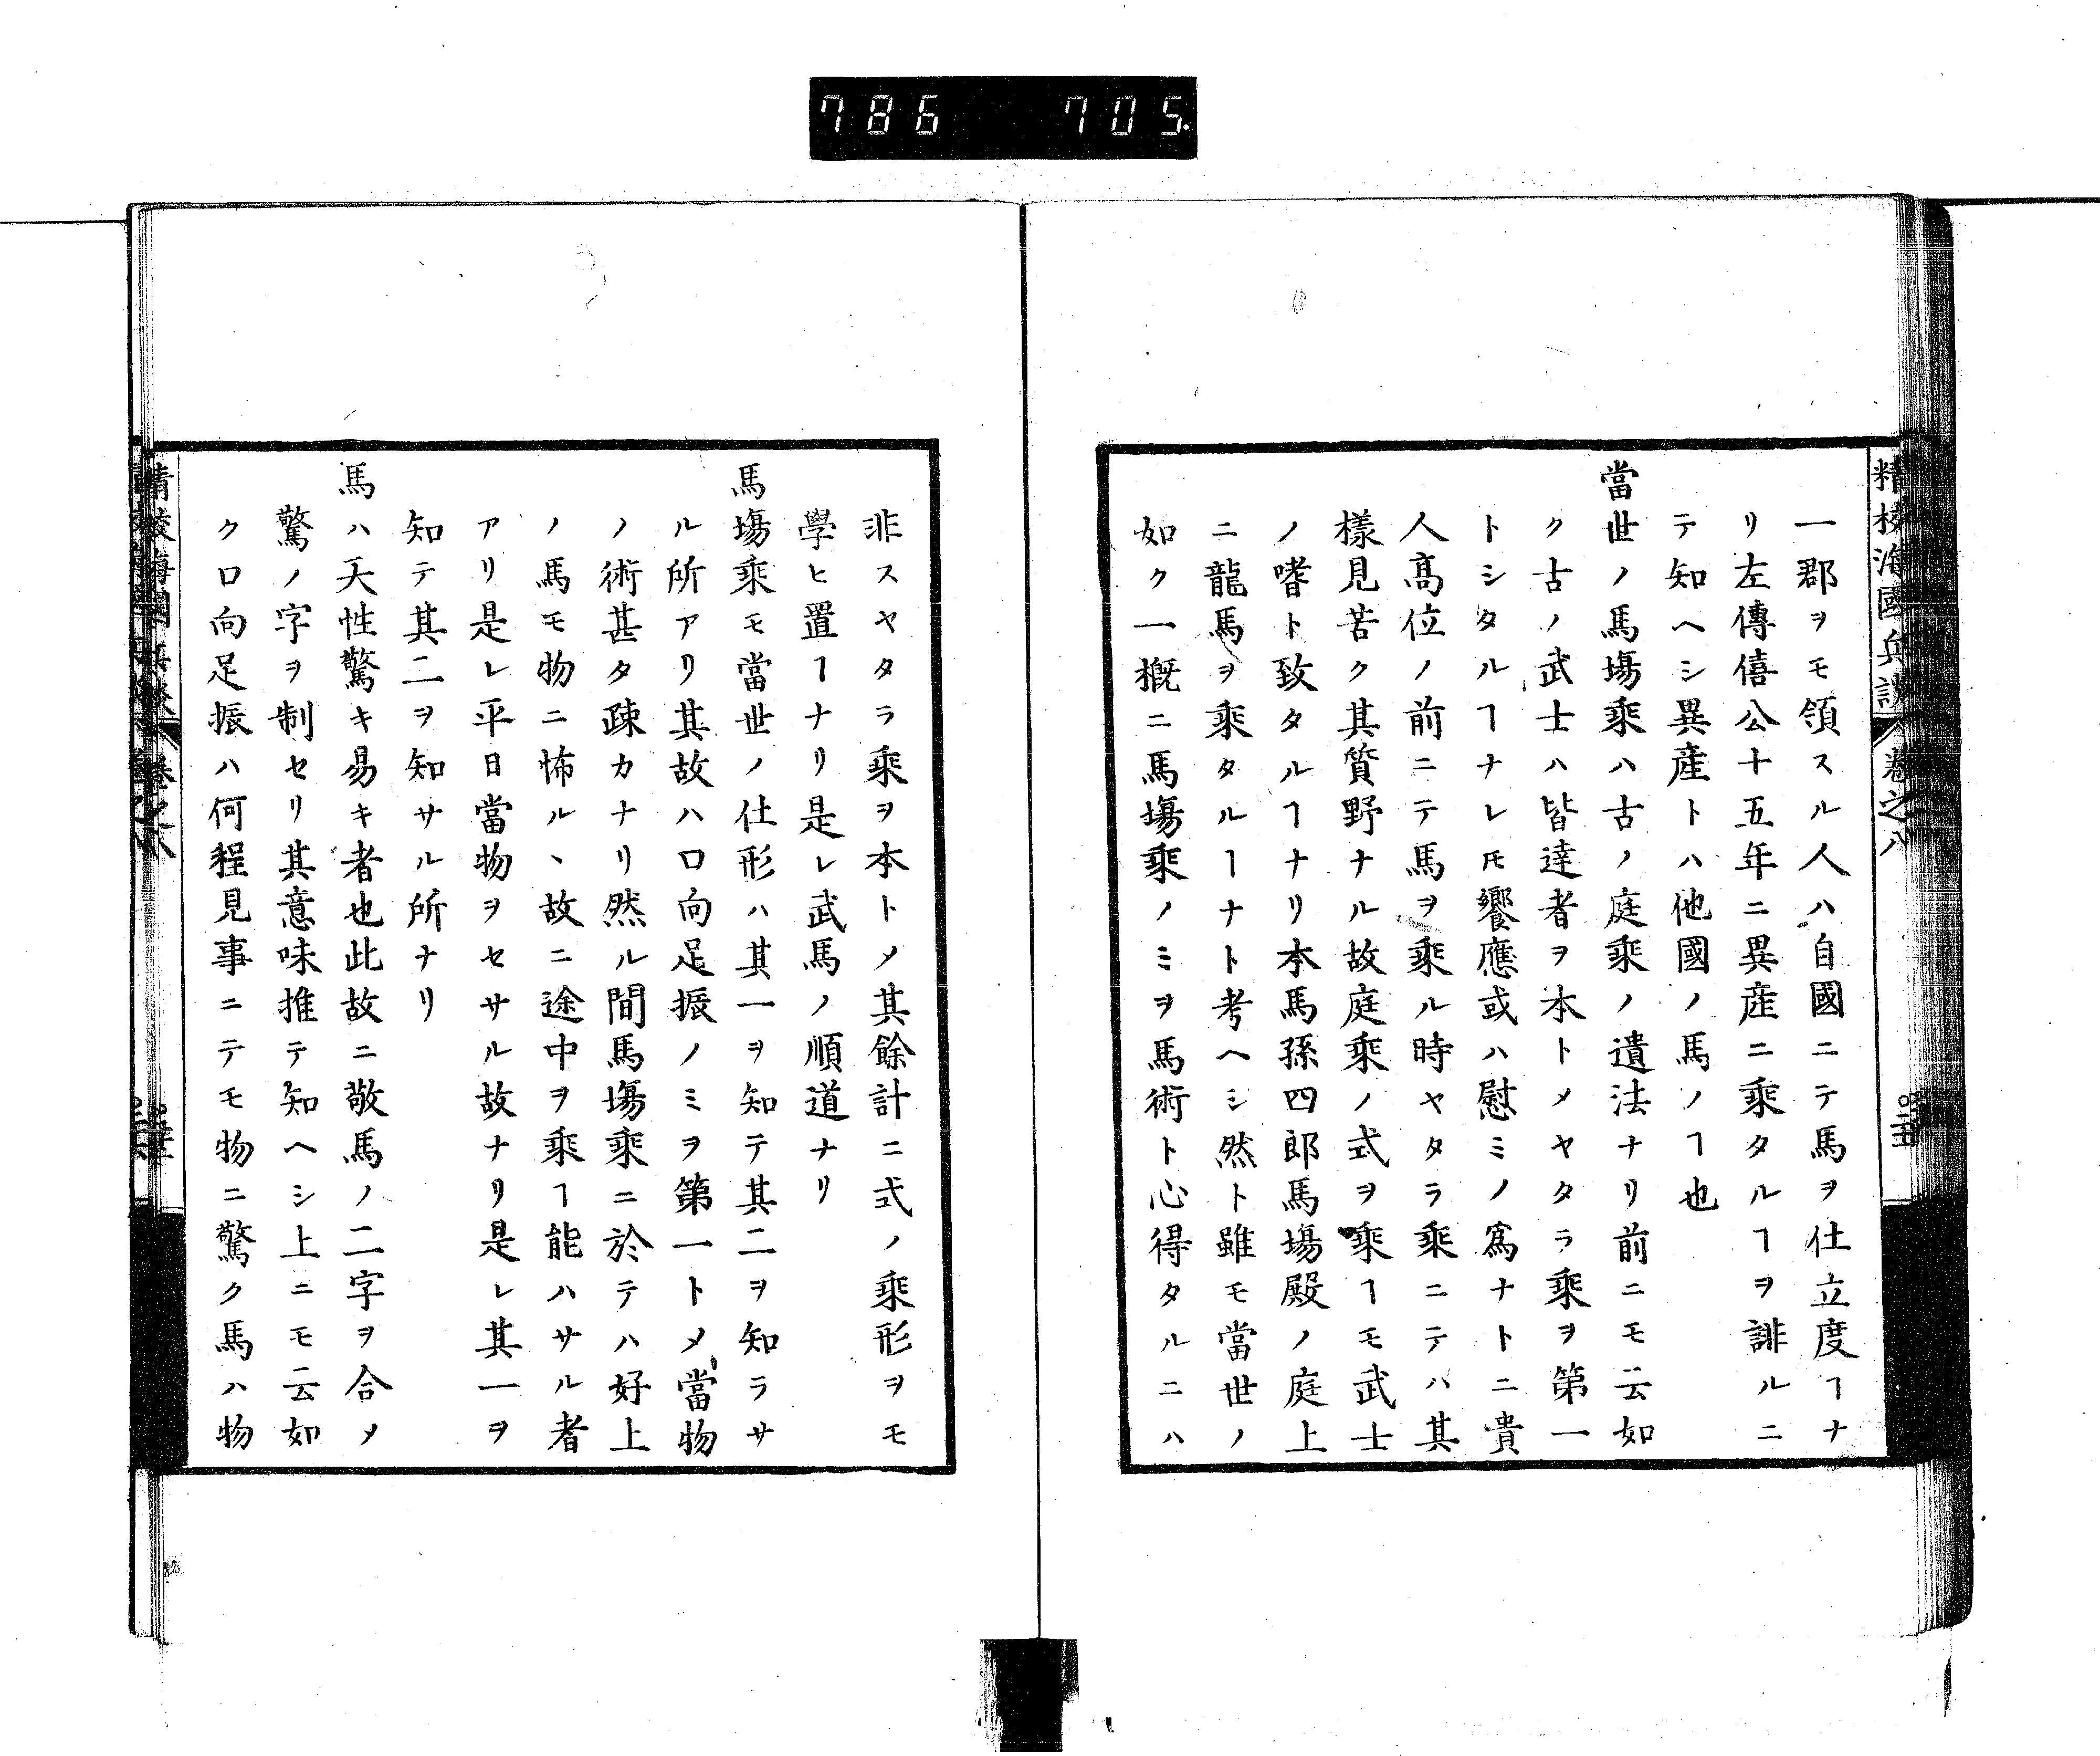 786 705
精校海國兵談 卷之八
一郡ヲモ領スル人ハ自國ニテ馬ヲ仕立度ヿナ
リ左傳僖公十五年ニ異產ニ乘タルヿヲ誹ルニ
テ知ヘシ異產トハ他國ノ馬ノヿ也
當世ノ馬塲乘ハ古ノ庭乘ノ遺法ナリ前ニモ云如
ク古ノ武士ハ皆達者ヲ本トメヤタラ乘ヲ第一
トシタルヿナレ𪜈饗應或ハ慰ミノ爲ナトニ貴
人髙位ノ前ニテ馬ヲ乘ル時ヤタラ乘ニテハ其
樣見苦ク其質野ナル故庭乘ノ式ヲ乘ヿモ武士
ノ嗜ト致タルヿナリ本馬孫四郎馬塲殿ノ庭上
ニ龍馬ヲ乘タルヿナト考ヘシ然ト雖モ當世ノ
如ク一概ニ馬塲乘ノミヲ馬術ト心得タルニハ
非スヤタラ乘ヲ本トメ其餘計ニ式ノ乘形ヲモ
學ヒ置ヿナリ是レ武馬ノ順道ナリ
馬塲乘モ當世ノ仕形ハ其一ヲ知テ其二ヲ知ラサ
ル所アリ其故ハ口向足振ノミヲ第一トメ當物
ノ術甚タ疎カナリ然ル間馬塲乘ニ於テハ好上
ノ馬モ物ニ怖ルヽ故ニ途中ヲ乘ヿ能ハサル者
アリ是レ平日當物ヲセサル故ナリ是レ其一ヲ
知テ其二ヲ知サル所ナリ
馬ハ天性驚キ易キ者也此故ニ敬馬ノ二字ヲ合メ
驚ノ字ヲ制セリ其意味推テ知ヘシ上ニモ云如
ク口向足振ハ何程見事ニテモ物ニ驚ク馬ハ物